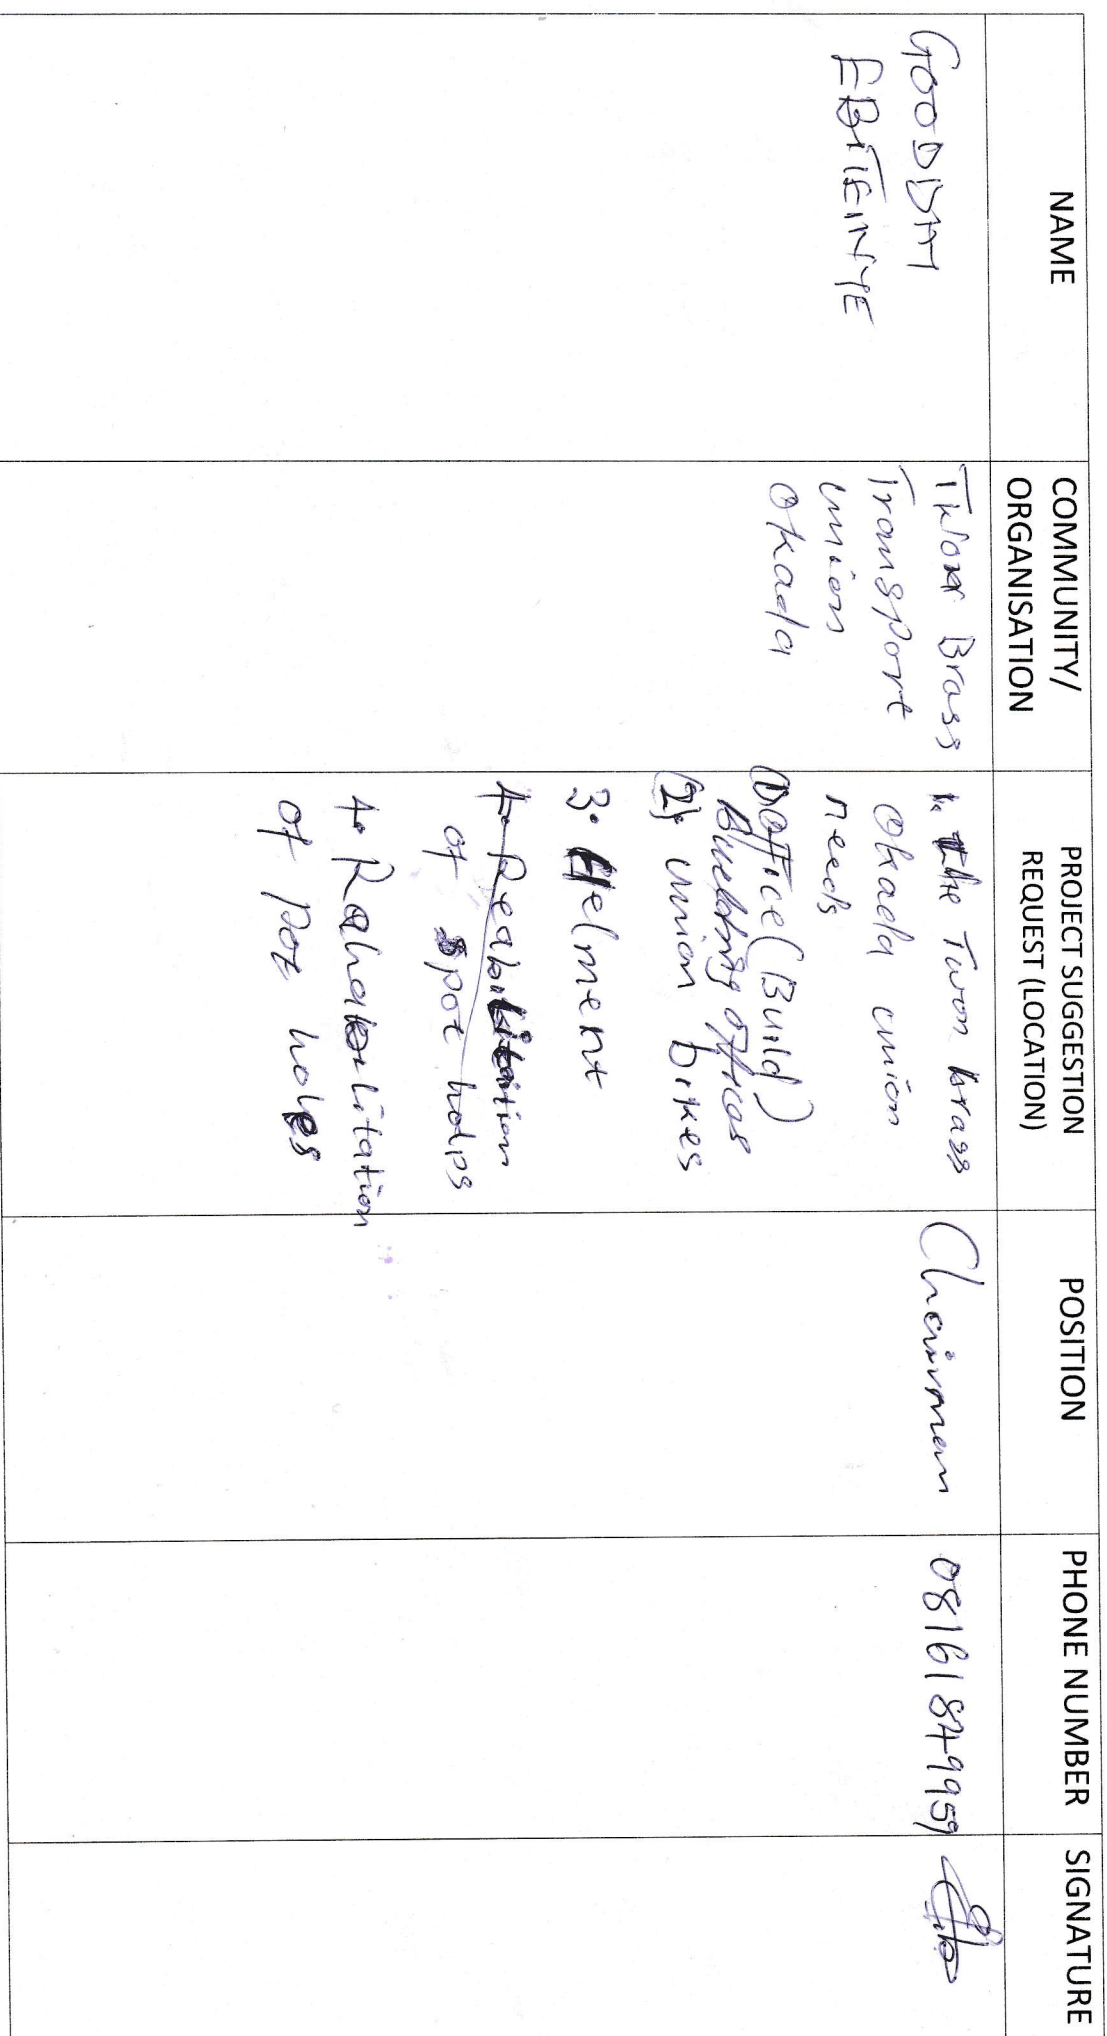 NAME
COMMUNITY/
ORGANISATION
PROJECT SUGGESTION
REQUEST (LOCATION)
POSITION
PHONE NUMBER
SIGNATURE
GOODDAY
EBITEINYE
Brass
Transport
union
Okada
the Twon brass
Okada union
needs
(1) Office (Build)
Buelding offices
(2) union bikes
3. Helment
4. Reabilitation
of spot holps
4. Rahabilitation
of poz holes
Chairman
08161849959